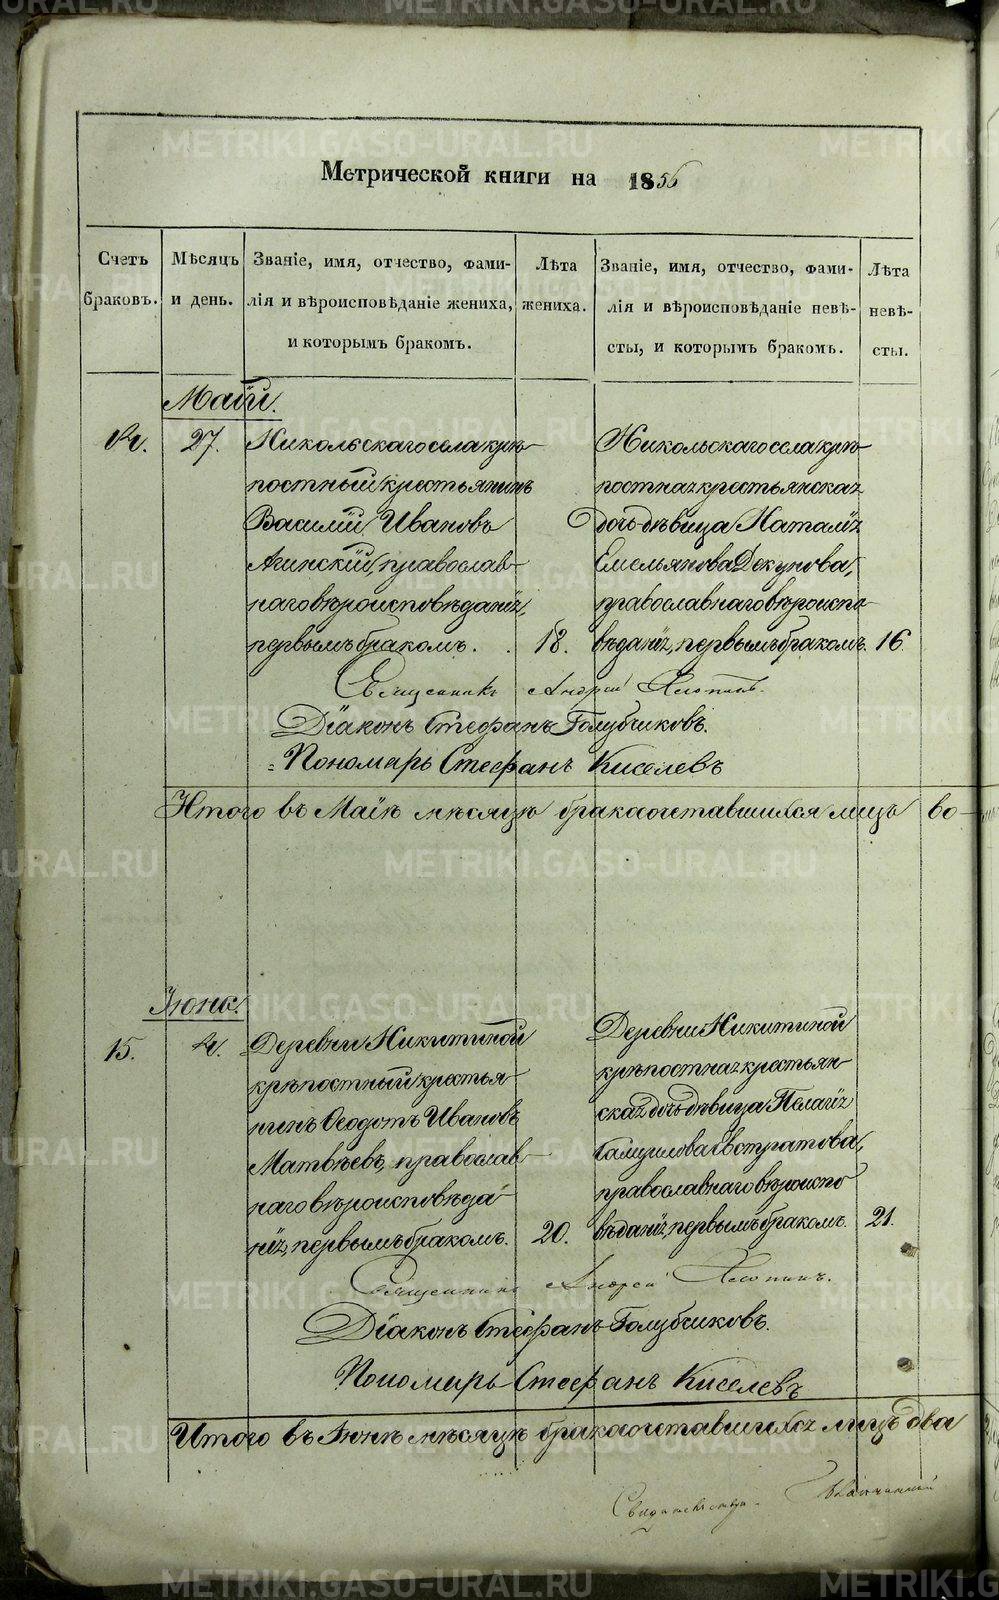 Метрической книги на 1856
Счетъ браковъ.
Мѣсяцъ и день.
Званіе, имя, отчество, фами-
лія и вѣроисповѣданіе жениха,
и которымъ бракомъ.
Лѣта
жениха.
Званіе, имя, отчество, фами-
лія и вѣроисповѣданіе невѣ-
сты, и которымъ бракомъ.
Лѣта
невѣ-
сты.
Маій.
27.
Никольскаго села крѣ-
постный крестьянинъ
Василій Ивановъ
Агинскій, православ-
наго вѣроисповѣданія,
первымъ бракомъ.
18.
Никольскаго села крѣ-
постная крестьянская
дочь-дѣвица Наталія
Емельянова Декунова,
православнаго вѣроиспо-
вѣданія, первымъ бракомъ.
16.
Священникъ Андрей
Діаконъ Стефанъ Голубчиковъ.
Пономарь Стефанъ Киселевъ
Итого въ Маіѣ мѣсяцѣ бракосочетавшихся лицъ во-
Іюнь.
15.
Деревни Никитиной
крѣпостный крестья-
нинъ Ѳеодотъ Ивановъ
Матвѣевъ, православ-
наго вѣроисповѣда-
нія, первымъ бракомъ.
20.
Деревни Никитиной
крѣпостная крестьян-
ская дочь-дѣвица Пелагія
Самуилова Евстратова,
православнаго вѣроиспо-
вѣданія, первымъ бракомъ.
21.
Священникъ Андрей
Діаконъ Стефанъ Голубчиковъ.
Пономарь Стефанъ Киселевъ
Итого въ Іюнѣ мѣсяцѣ бракосочетавшихся лицъ два
METRIKI.GASO-URAL.RU